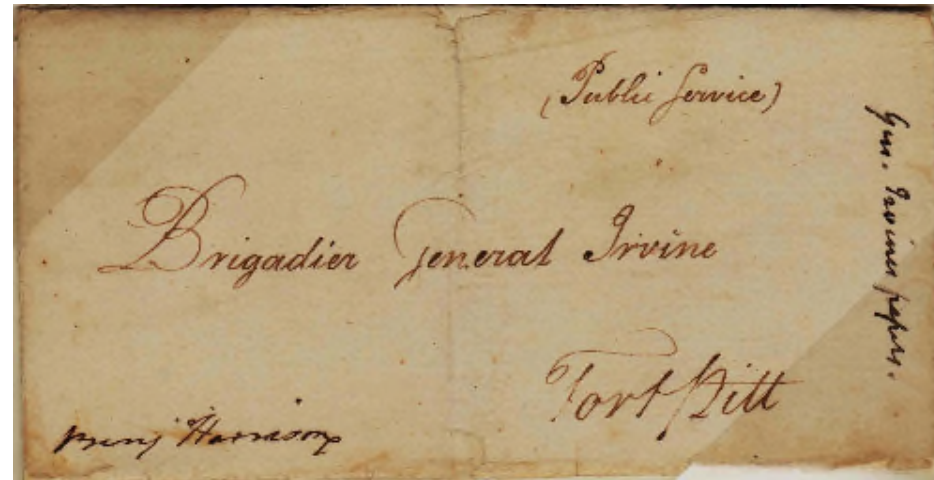 (Public Service)
Brigadier General Irvine
Fort Pitt
Benj Harrison
Gen. Irvines papers.